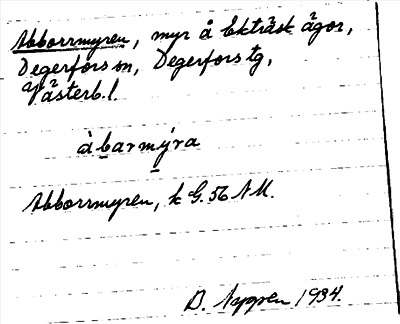 Abborrmyren, myr å Ekträsk ägor,
Degerfors sn, Degerfors tg,
Västerb. l.
àbarmýra
Abborrmyren, k G. 56 NM.
B. Nygren 1934.